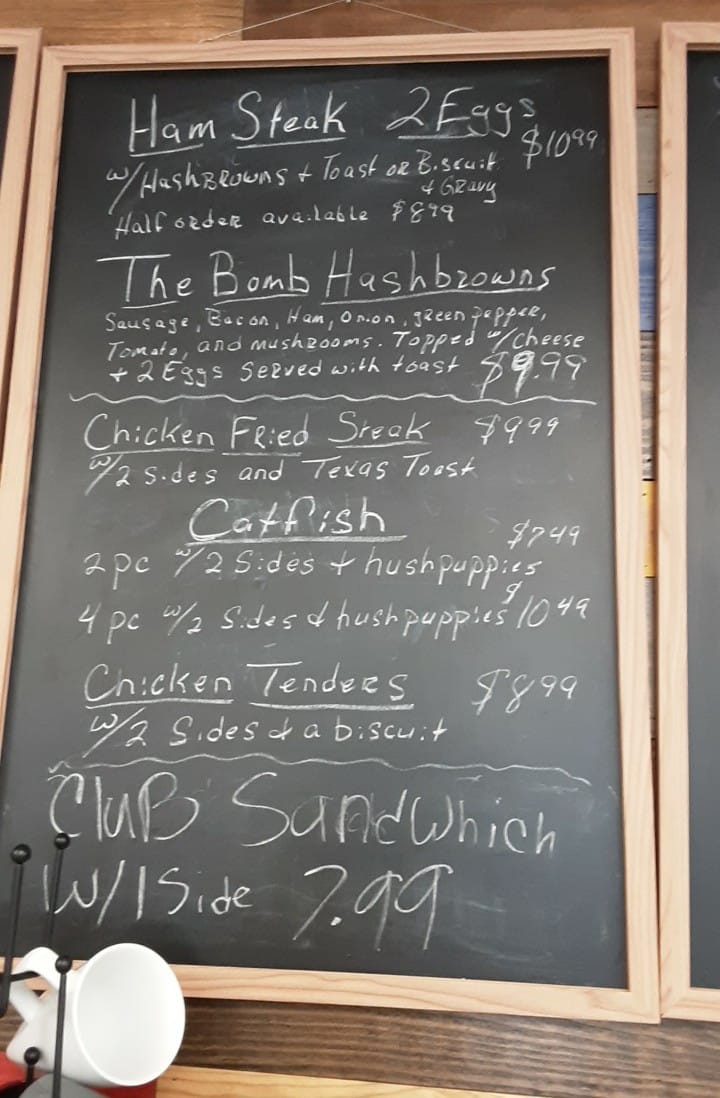 Ham Steak 2 Eggs
$10.99
w/ Hashbrowns + Toast or Biscuit
+ Gravy
Half order available $8.99
The Bomb Hashbrowns
Sausage, Bacon, Ham, Onion, green pepper,
Tomato, and mushrooms. Topped w/ cheese
+ 2 Eggs Served with toast $9.99
Chicken Fried Steak $9.99
w/2 sides and Texas Toast
Catfish
$7.49
2pc w/2 Sides + hushpuppies
4 pc w/2 Sides & hushpuppies $10.49
Chicken Tenders $8.99
w/2 Sides & a biscuit
Club Sandwhich
W/1 Side 7.99